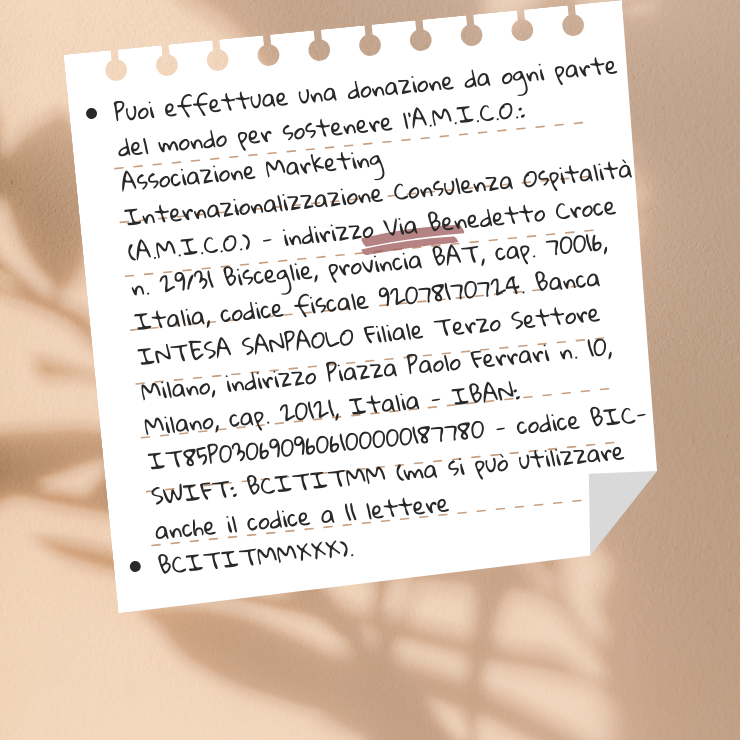 • Puoi effettuae una donazione da ogni parte
del mondo per sostenere l'A.M.I.C.O.:
Associazione Marketing
Internazionalizzazione Consulenza Ospitalità
(A.M.I.C.O.) - indirizzo Via Benedetto Croce
n. 29/31 Bisceglie, provincia BAT, cap. 70016,
Italia, codice fiscale 92078170724. Banca
INTESA SANPAOLO Filiale Terzo Settore
Milano, indirizzo Piazza Paolo Ferrari n. 10,
Milano, cap. 20121, Italia - IBAN:
IT85P0306909606100000187780 - codice BIC-
SWIFT: BCITITMM (ma si può utilizzare
anche il codice a 11 lettere
• BCITITMMXXX).